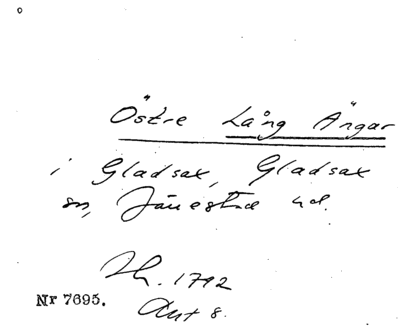 Östre Lång Ängar
i Gladsax, Gladsax
sn, Järrestad hd.
Sk. 1792
Akt 8.
Nr 7695.